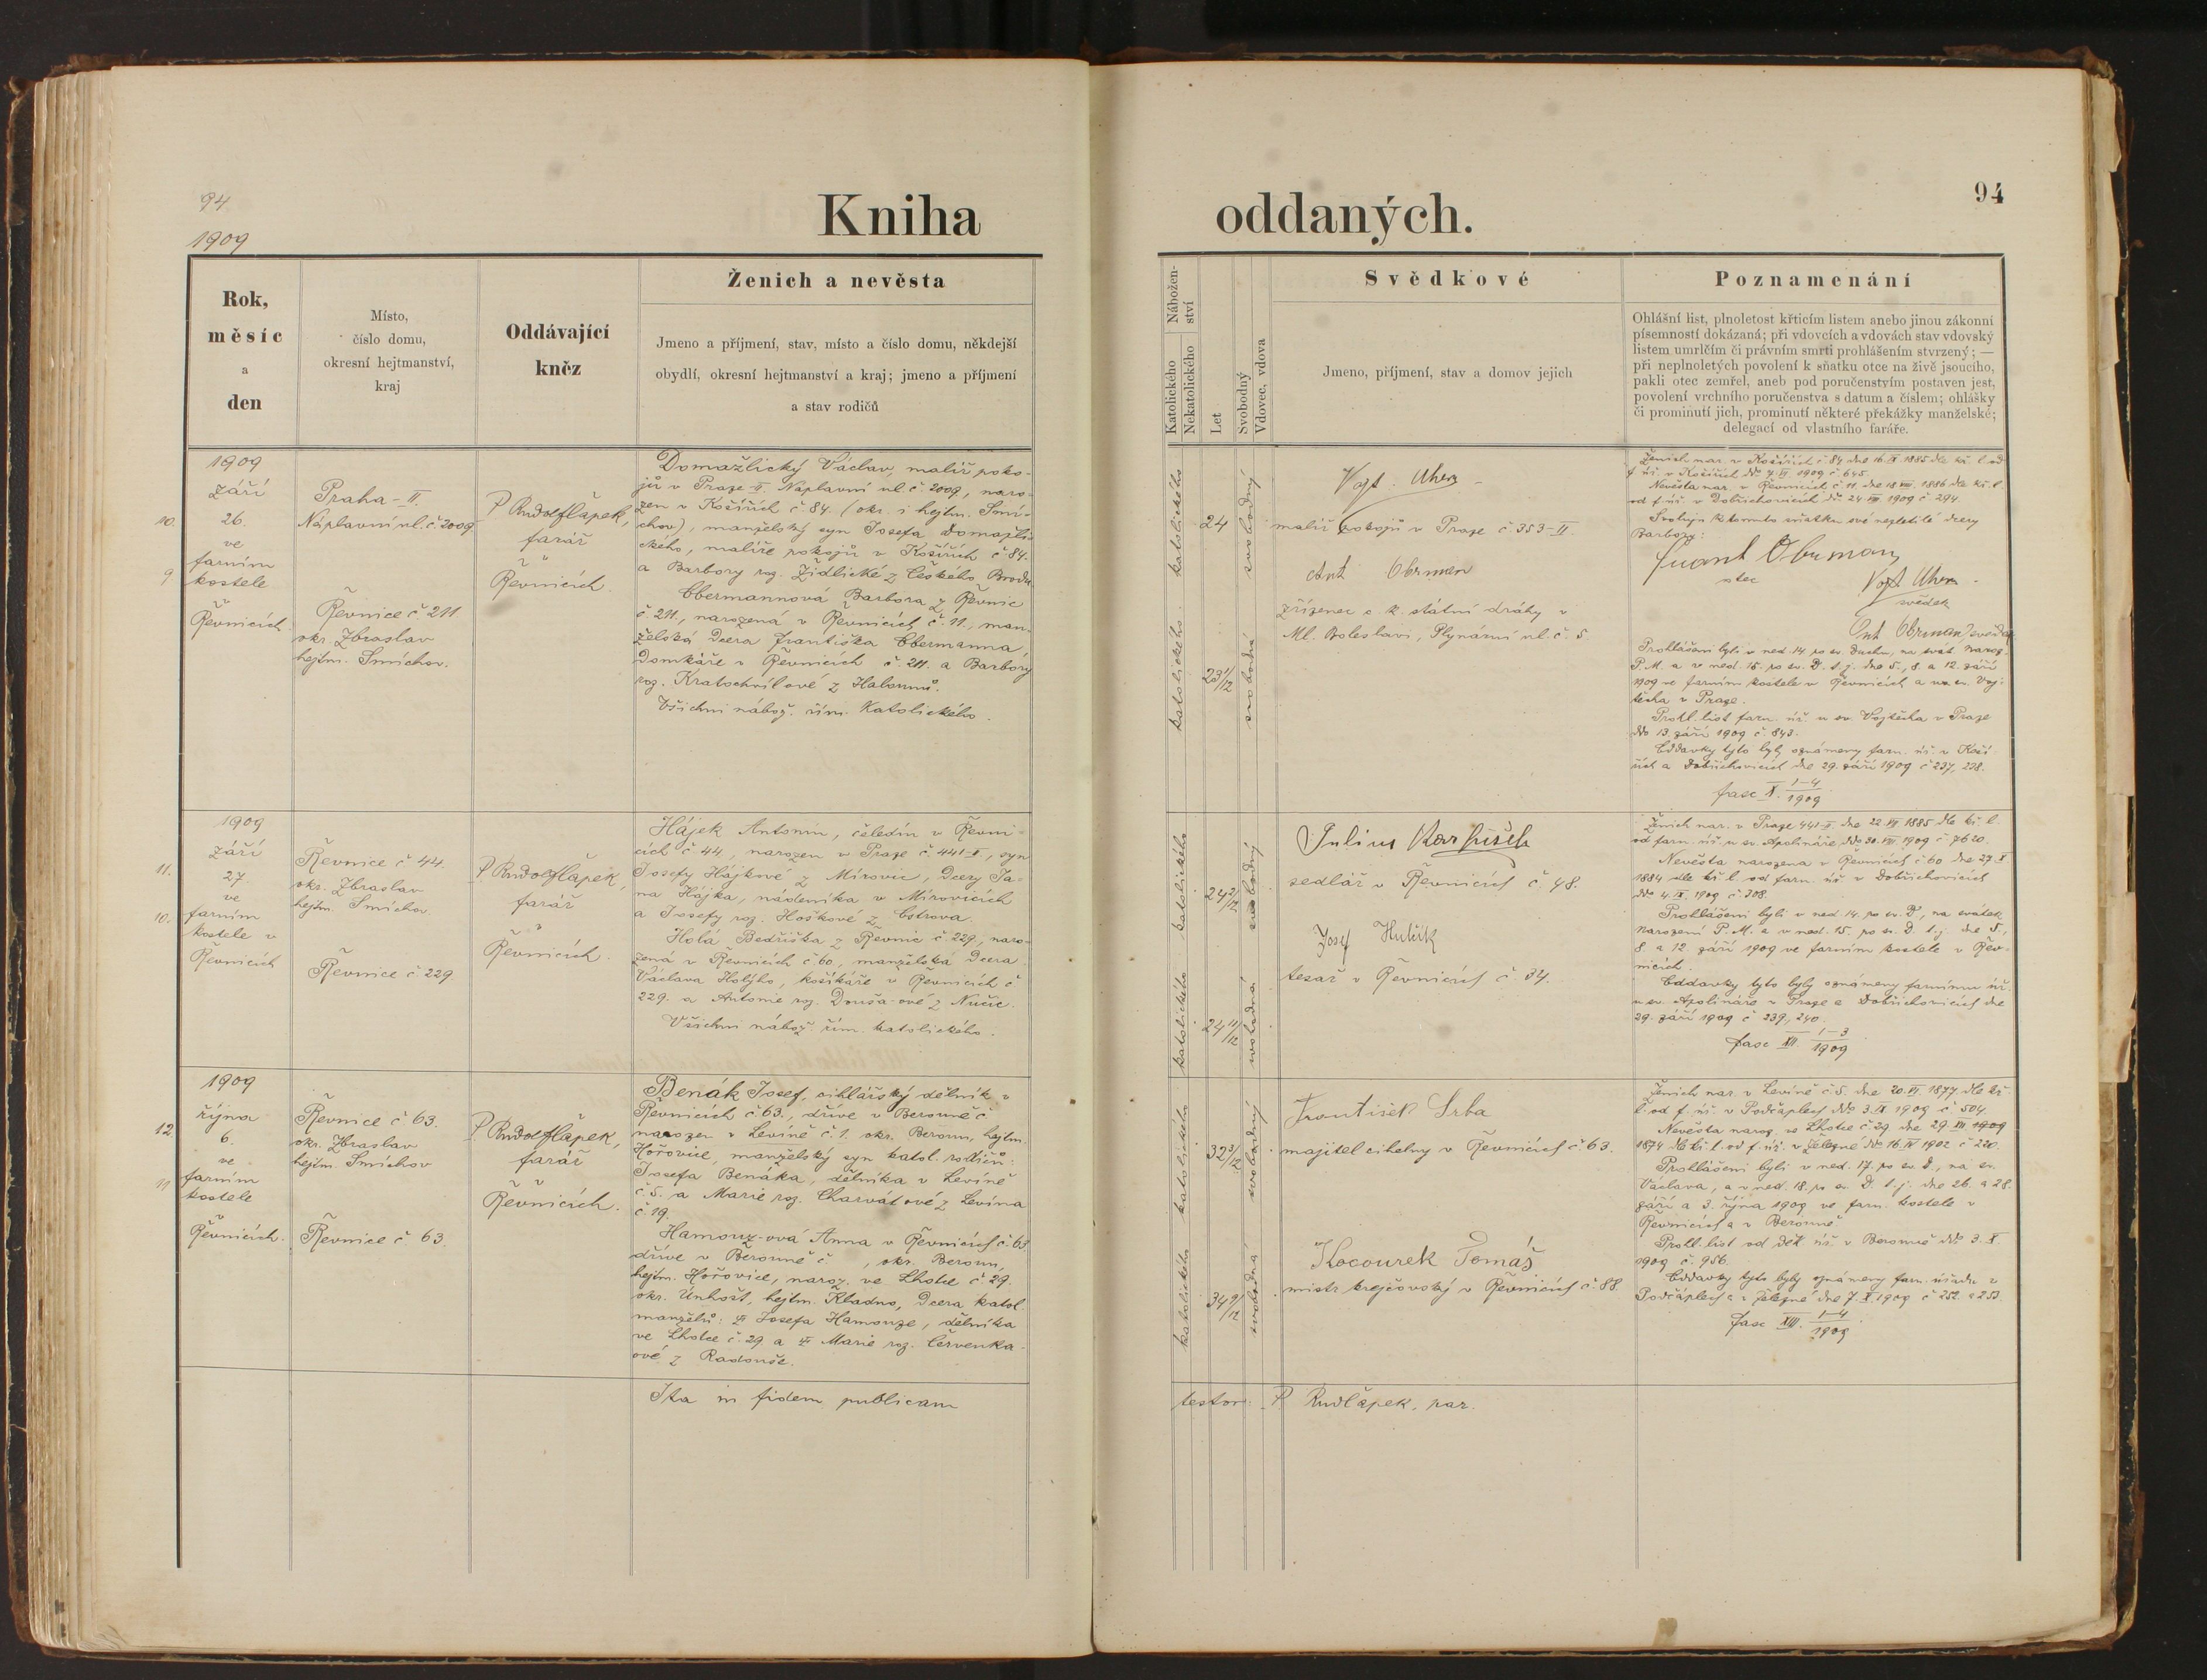 94
1909
Kniha
oddaných.
94
Rok,
měsíc
a
den
Místo,
číslo domu,
okresní hejtmanství,
kraj
Oddávající
kněz
Ženich a nevěsta
Jmeno a příjmení, stav, místo a číslo domu, někdejší
obydlí, okresní hejtmanství a kraj; jmeno a příjmení
a stav rodičů
Nábožen-
ství
Katolického
Nekatolického
Let
Svobodný
Vdovec, vdova
Svědkové
Jmeno, příjmení, stav a domov jejich
Poznamenání
Ohlášní list, plnoletost křticím listem anebo jinou zákonní
písemností dokázaná; při vdovcích a vdovách stav vdovský
listem umrlčím či právním smrti prohlášením stvrzený; —
při neplnoletých povolení k sňatku otce na živě jsoucího,
pakli otec zemřel, aneb pod poručenstvím postaven jest,
povolení vrchního poručenstva s datum a číslem; ohlášky
či prominutí jich, prominutí některé překážky manželské;
delegací od vlastního faráře.
10.
9
1909
září
26.
ve
farním
kostele
v
Řevnicích
Praha-II.
Náplavní ul. č. 2009
Řevnice č 211
okr. Zbraslav
hejtm. Smíchov.
P Rudolf Čapek,
farář
v
Řevnicích.
Domažlický Václav, malíř poko-
jů v Praze-II. Náplavní ul. č. 2009, naro-
zen v Košířích č 84. (okr. i hejtm. Smí-
chov), manželský syn Josefa Domažli-
ckého, malíře pokojů v Košířích č 84.
a Barbory roz. Židlické z Českého Brodu
Obermannová Barbora z Řevnic
č 211., narozená v Řevnicích č. 11., man-
želská dcera Františka Obermanna,
domkáře v Řevnicích č 211. a Barbory
roz. Kratochvílové z Halounů.
Všichni nábož. řím. katolického.
katolického
katolického
24
23 1/12
svobodný
svobodná
Vojt. Uher
malíř pokojů v Praze č 353-II.
Ant Obrman
zřízenec c. k. státní dráhy v
Ml. Boleslavi, Plynární ul. č. 5.
Ženich nar. v Košířích č 84 dne 16. IX 1885 dle kř. l. od
f. úř. v Košířích dto 7. IX 1909 č 645.
Nevěsta nar. v Řevnicích č. 11. dne 18 VIII. 1886 dle kř. l.
od f. úř. v Dobřichovicích dto 24. VIII 1909 č 294.
Svoluji k tomuto sňatku své nezletilé dcery
Barbory:
Frant Obrman
otec
Vojt Uher
svědek
Ant Obrman svědek
Prohlášeni byli v ned. 14 po sv. Duchu, na svát. Naroz.
P. M. a v ned. 15. po sv. D. t. j. dne 5., 8. a 12. září
1909 ve farním kostele v Řevnicích a u sv. Voj-
těcha v Praze.
Prohl. list farn. úř. u sv. Vojtěcha v Praze
dto 13. září 1909 č. 843.
Oddavky tyto byly oznámeny farn. úř. v Koší-
řích a Dobřichovicích dne 29. září 1909 č 237, 238.
fasc X. 1-4/1909
11.
10.
1909
září
27.
ve
farním
kostele v
Řevnicích
Řevnice č 44.
okr. Zbraslav
hejtm. Smíchov
Řevnice č 229
P. Rudolf Čapek,
farář
v
Řevnicích.
Hájek Antonín, čeledín v Řevni-
cích č. 44., narozen v Praze č. 441-II, syn
Josefy Hájkové z Mírovic, dcery Ja-
na Hájka, nádeníka v Mírovicích
a Josefy roz. Hoškové z Ostrova.
Holá Bedřiška z Řevnic č 229., naro-
zená v Řevnicích č 60., manželská dcera
Václava Holýho, košíkáře v Řevnicích č
229. a Antonie roz. Douša-ové z Nučic.
Všichni nábož řím. katolického.
katolického
katolického
24 2/12
24 11/12
svobodný
svobodná
Julius Karfusek
sedlář v Řevnicích č. 48.
Josef Hulčik
tesař v Řevnicích č 34.
Ženich nar. v Praze 441-II. dne 22. VII 1885 dle kř. l.
od farn. úř. u sv. Apolináře dto 30. VIII 1909 č 7620.
Nevěsta narozena v Řevnicích č 60 dne 27. X
1884 dle kř. l. od farn. úř. v Dobřichovicích
dto 4. IX. 1909 č. 308.
Prohlášeni byli v ned. 14. po sv. D, na svátek
Narození P. M. a v ned. 15. po sv. D. t. j. dne 5.,
8. a 12. září 1909 ve farním kostele v Řev-
nicích.
Oddavky tyto byly oznámeny farnímu úř.
u sv. Apolináře v Praze a Dobřichovicích dne
29. září 1909 č 239, 240.
fasc XII. 1-3/1909
12
11
1909
října
6.
ve
farním
kostele
v
Řevnicích.
Řevnice č 63.
okr. Zbraslav
hejtm. Smíchov
Řevnice č. 63.
P. Rudolf Čapek,
farář
v
Řevnicích.
Benák Josef, cihlářský dělník v
Řevnicích č 63., dříve v Berouně č
narozen v Levíně č. 1. okr. Beroun, hejtm.
Hořovice, manželský syn katol. rodičů:
Josefa Benáka, dělníka v Levíně
č. 5. a Marie roz. Charvátové z Levína
č. 19
Hamouz-ová Anna v Řevnicích č 63
dříve v Berouně č. , okr. Beroun,
hejtm. Hořovice, naroz. ve Lhotce č. 29.
okr. Unhošť, hejtm. Kladno, dcera katol.
manželů: † Josefa Hamouze, dělníka
ve Lhotce č. 29. a † Marie roz. Červenka-
ové z Radouše.
katolického
katolického
32 3/12
34 9/12
svobodný
svobodná
František Srba
majitel cihelny v Řevnicích č 63.
Kocourek Tomáš
mistr krejčovský v Řevnicích č. 88.
Ženich nar. v Levíně č. 5. dne 20. VI 1877 dle kř.
l. od f. úř. v Podčáplech dto 3. IX 1909 č 504.
Nevěsta naroz. ve Lhotce č. 29 dne 29. XII 1909
1874 dle kř. l. od f. úř. v Železné dto 16. IV 1902. č 220.
Prohlášeni byli v ned. 17. po sv. D., na sv.
Václava, a v ned. 18. po sv. D. t. j. dne 26. a 28.
září a 3. října 1909 ve farn. kostele v
Řevnicích a v Berouně
Prohl. list od děk. úř. v Berouně dto 3. X.
1909 č. 956.
Oddavky tyto byly oznámeny farn. úřadu v
Podčáplech a v Železné dne 7. X. 1909 č 252. a 253.
fasc XIII. 1-4/1909
Ita in fidem publicam
testor: P Rud Čapek, par.